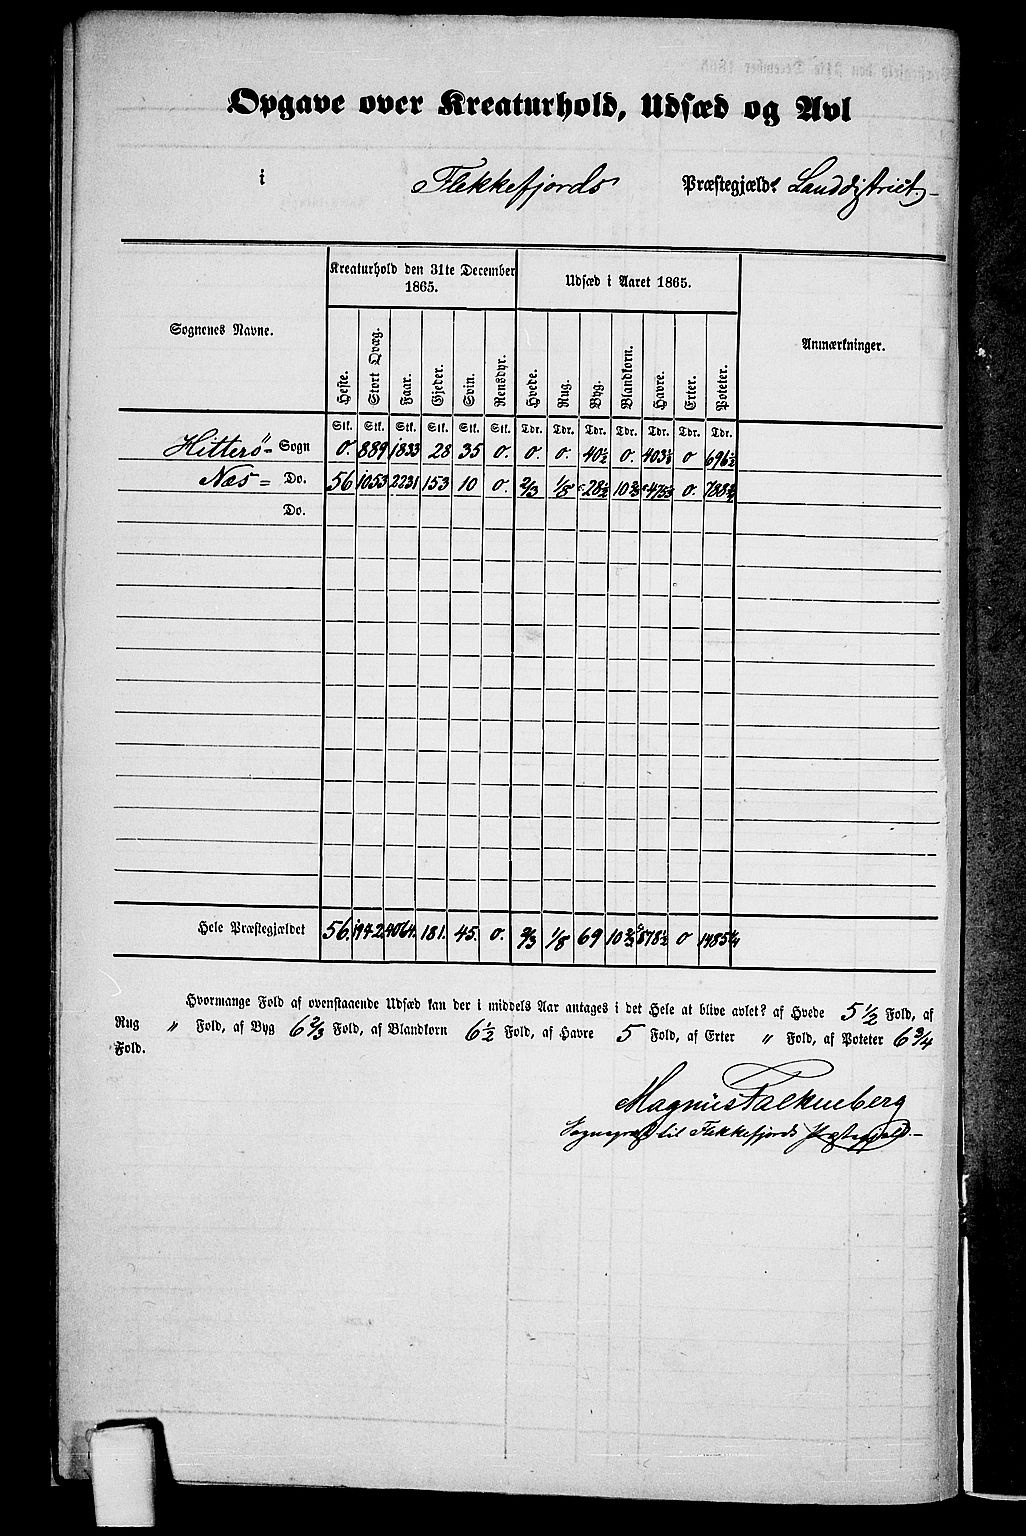 Opgave over Kreaturhold, Udsæd og Avl
i Flekkefjords Præstegjæld. Landdistrict
Sognenes Navne. Kreaturhold den 31te December 1865. Udsæd i Aaret 1865. Anmærkninger.
Heste. Stort Qvæg. Faar. Gjeder. Svin. Rensdyr. Hvede. Rug. Byg. Blandkorn. Havre. Erter. Poteter.
Stk. Stk. Stk. Stk. Stk. Stk. Tdr. Tdr. Tdr. Tdr. Tdr. Tdr. Tdr.
Hitterö Sogn 0. 889 1833 28 35 0. 0. 0. 40½ 0. 403⅓ 0 696½
Næs Do. 56 1053 2231 153 10 0. ⅔ ⅛ 28½ 10⅔ 475 0. 788¾
Do.
Hele Præstegjældet 56. 1942. 4064. 181. 45. 0. ⅔ ⅛ 69 10⅔ 878½ 0 1485¼
Hvormange Fold af ovenstaaende Udsæd kan der i middels Aar antages i det Hele at blive avlet? af Hvede 5½ Fold, af
Rug „ Fold, af Byg 6⅔ Fold, af Blandkorn 6½ Fold, af Havre 5 Fold, af Erter „ Fold, af Poteter 6¾
Fold.
Magnus Falkenberg
Sognepræst til Flekkefjords Præstegjeld.